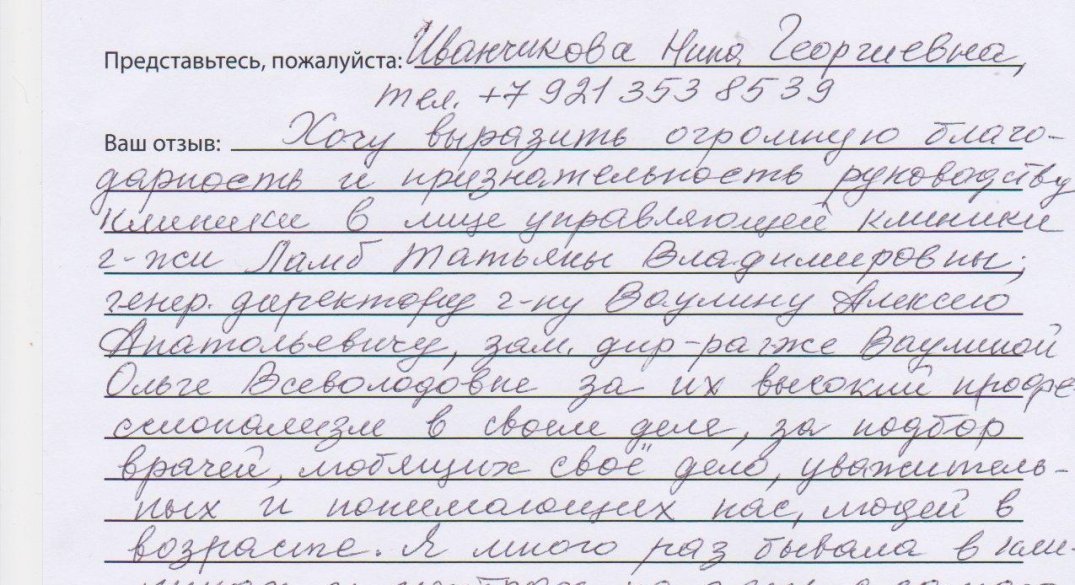 Представьтесь, пожалуйста: Иванчикова Нина Георгиевна,
тел. +7 921 353 85 39
Ваш отзыв: Хочу выразить огромную благо-
дарность и признательность руководству
клиники в лице управляющей клиники
г-жи Ламб Татьяны Владимировны;
генер. директору г-ну Ваулину Алексею
Анатольевичу, зам. дир-ра г-же Ваулиной
Ольге Всеволодовне за их высокий профе-
ссионализм в своём деле, за подбор
врачей, любящих своё дело, уважитель-
ных и понимающих нас, людей в
возрасте. Я много раз бывала в кли-